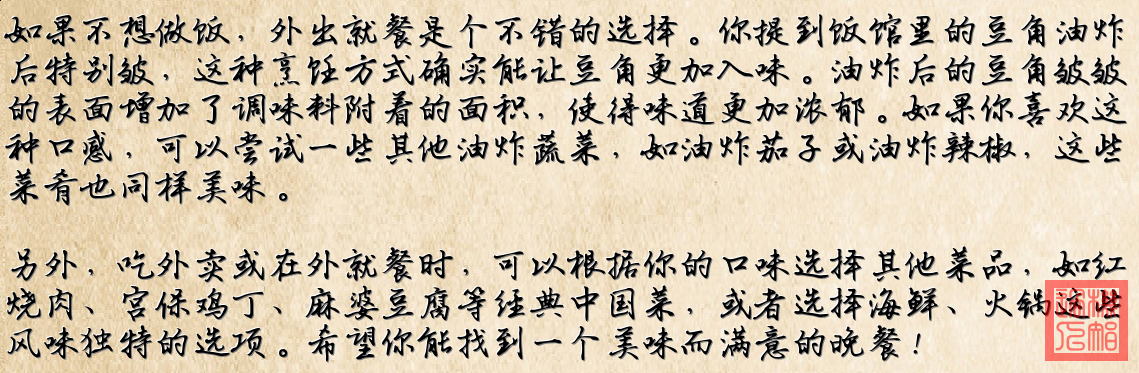 如果不想做饭，外出就餐是个不错的选择。你提到饭馆里的豆角油炸
后特别皱，这种烹饪方式确实能让豆角更加入味。油炸后的豆角皱皱
的表面增加了调味料附着的面积，使得味道更加浓郁。如果你喜欢这
种口感，可以尝试一些其他油炸蔬菜，如油炸茄子或油炸辣椒，这些
菜肴也同样美味。
另外，吃外卖或在外就餐时，可以根据你的口味选择其他菜品，如红
烧肉、宫保鸡丁、麻婆豆腐等经典中国菜，或者选择海鲜、火锅这些
风味独特的选项。希望你能找到一个美味而满意的晚餐！